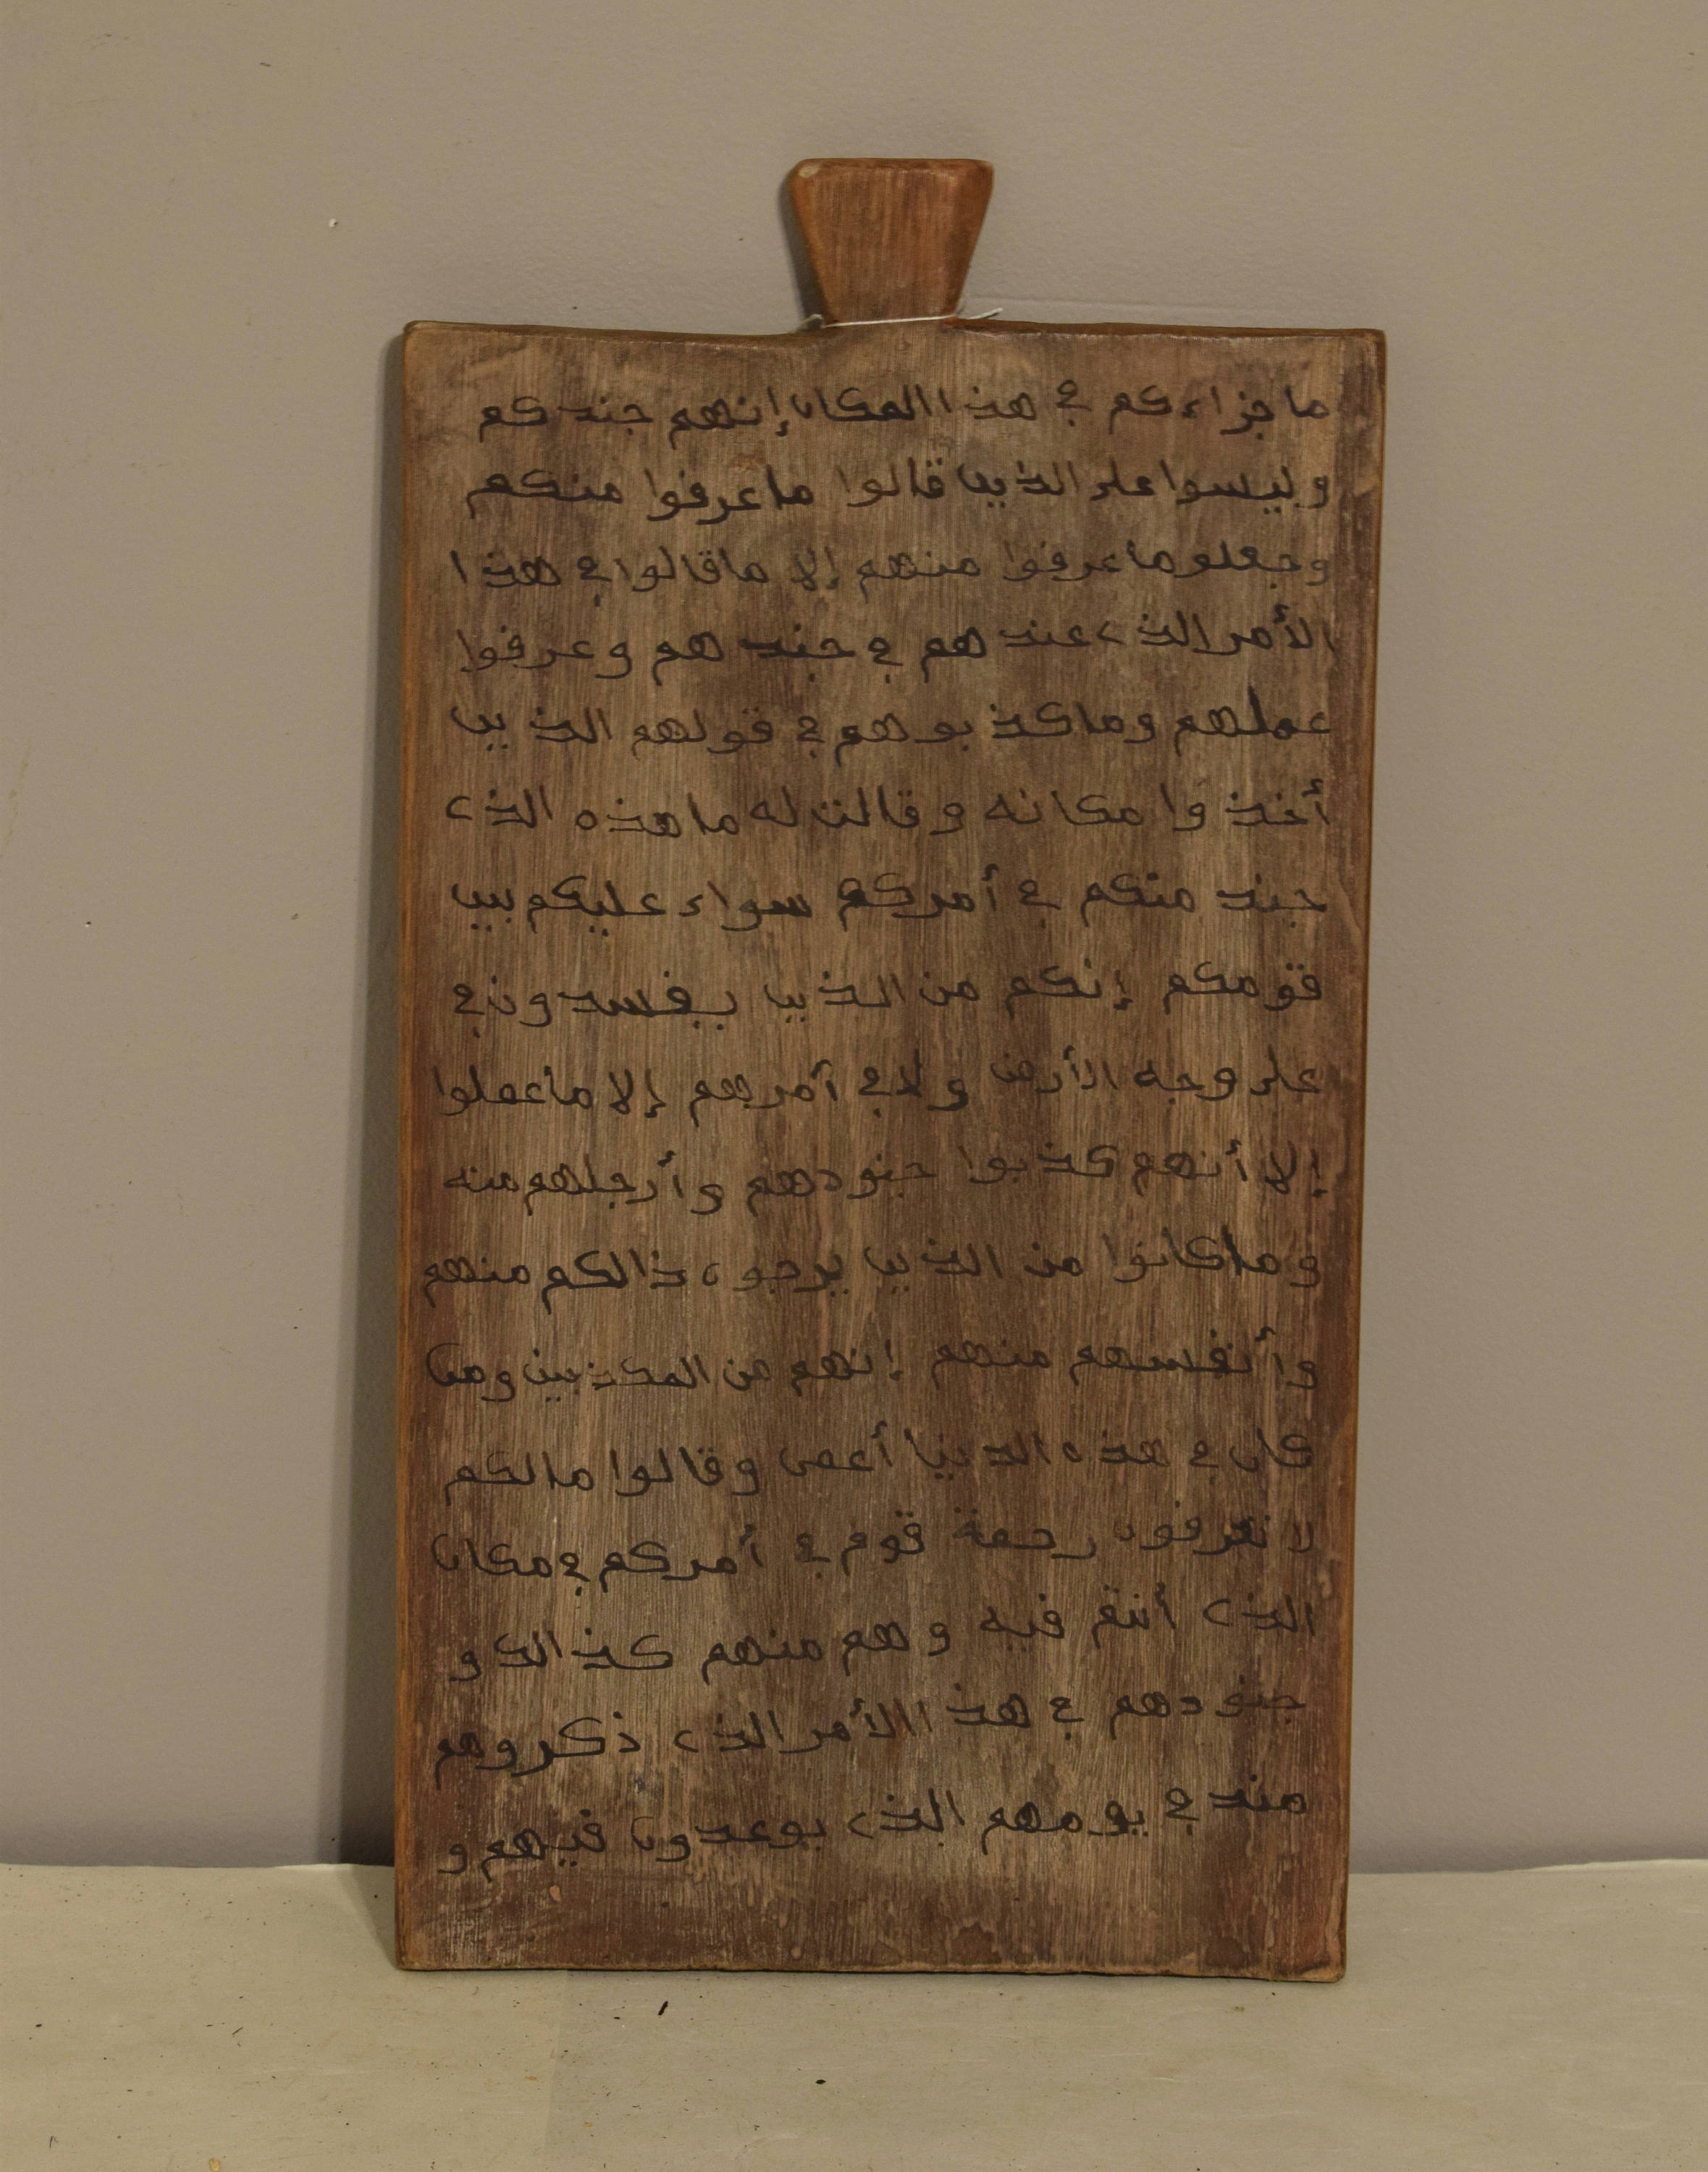 ما جزاءكم في هذا المكان إنهم جندكم
وليسوا على الذين قالوا ما عرفوا منكم
وجعلو ما عرفوا منهم إلا ما قالوا في هذا
الأمر الذي عندهم في جندهم وعرفوا
عملهم وما كذبوهم في قولهم الذين
أخذوا مكانه وقالت له ما هذه الذي
جند منكم في أمركم سواء عليكم بين
قومكم إنكم من الذين يفسدون في
على وجه الأرض ولا في أمرهم إلا ما عملوا
إلا أنهم كذبوا جنودهم وأرجلهم منه
وما كانوا من الذين يرجون ذالكم منهم
وأنفسهم منهم إنهم من المكذبين ومن
كان في هذه الدنيا أعمى وقالوا مالكم
لا تعرفون رحمة قوم في أمركم في مكان
الذي أنتم فيه وهم منهم كذالك و
جنودهم في هذا الأمر الذي ذكروهم
منذ في يومهم الذي يوعدون فيهم و